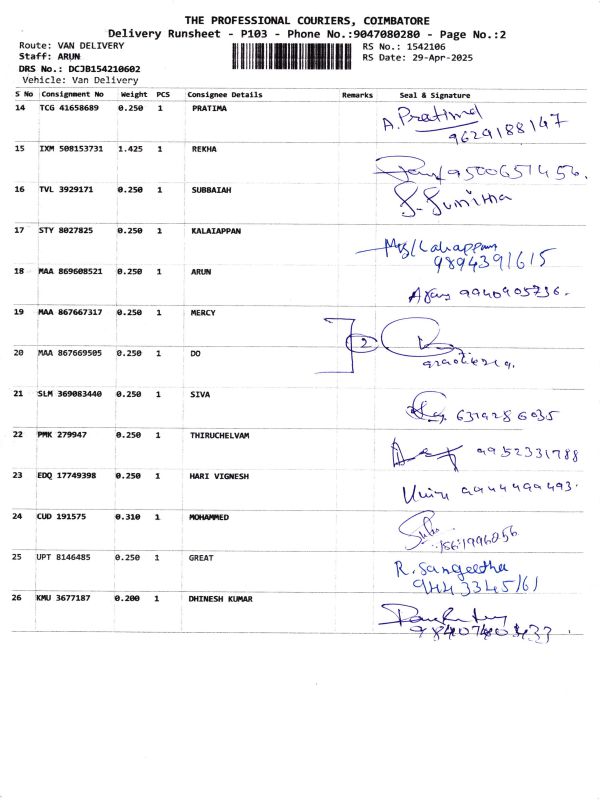 THE PROFESSIONAL COURIERS, COIMBATORE
Delivery Runsheet - P103 - Phone No.:9047080280 - Page No.:2
Route: VAN DELIVERY RS No.: 1542106
Staff: ARUN RS Date: 29-Apr-2025
DRS No.: DCJB154210602
Vehicle: Van Delivery
S No Consignment No Weight PCS Consignee Details Remarks Seal & Signature
14 TCG 41658689 0.250 1 PRATIMA
A. Pratima
9629188147
15 IXM 508153731 1.425 1 REKHA
9500651456.
16 TVL 3929171 0.250 1 SUBBAIAH
S. Sunitha
17 STY 8027825 0.250 1 KALAIAPPAN
9894391615
18 MAA 869608521 0.250 1 ARUN
9940905736.
19 MAA 867667317 0.250 1 MERCY
2
20 MAA 867669505 0.250 1 DO
21 SLM 369083440 0.250 1 SIVA
6374286035
22 PMK 279947 0.250 1 THIRUCHELVAM
9952331788
23 EDQ 17749398 0.250 1 HARI VIGNESH
9944499493.
24 CUD 191575 0.310 1 MOHAMMED
25 UPT 8146485 0.250 1 GREAT
R. Sangeetha
9443345161
26 KMU 3677187 0.200 1 DHINESH KUMAR